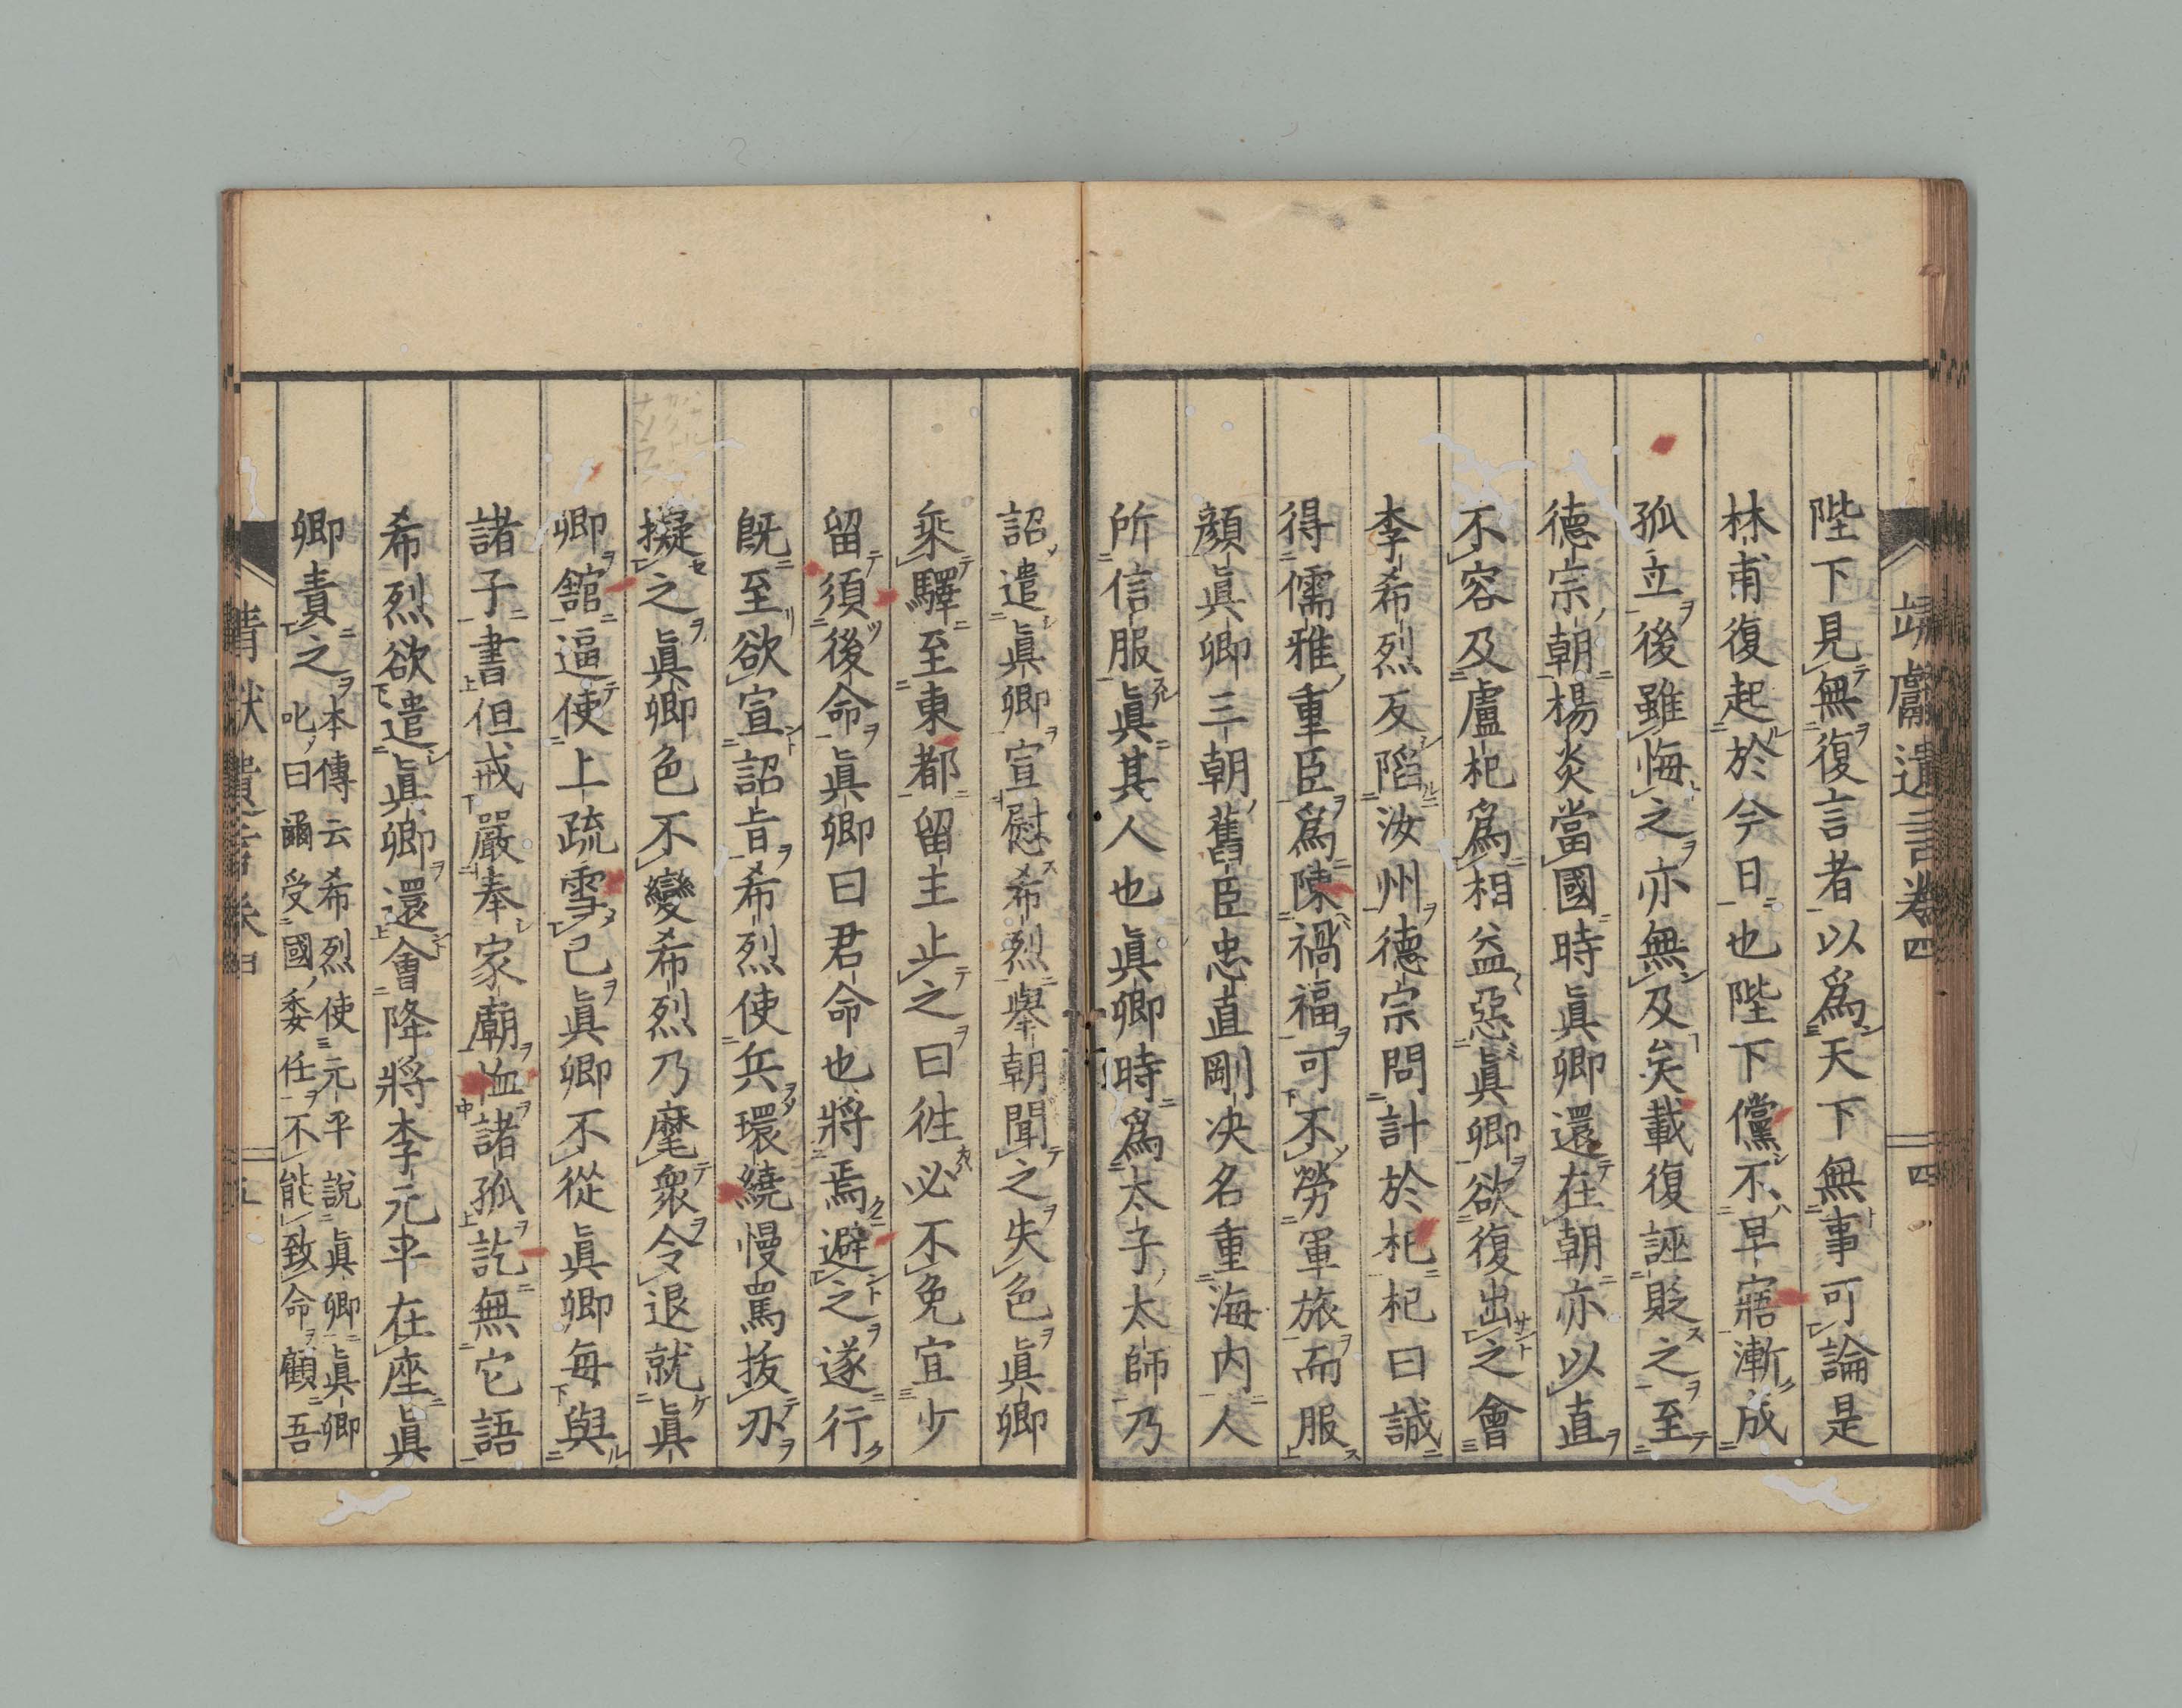 靖獻遺言卷四
四
陛下見無復言者以爲天下無事可論是
林甫復起於今日也陛下儻不早寤漸成
孤立後雖悔之亦無及矣載復誣貶之至
德宗朝楊炎當國時眞卿還在朝亦以直
不容及盧杞爲相益惡眞卿欲復出之會
李希烈反陷汝州德宗問計於杞杞曰誠
得儒雅重臣爲陳禍福可不勞軍旅而服
顏眞卿三朝舊臣忠直剛决名重海内人
所信服眞其人也眞卿時爲太子太師乃
詔遣眞卿宣慰希烈舉朝聞之失色眞卿
乘驛至東都留主止之曰往必不免宜少
留須後命眞卿曰君命也將焉避之遂行
旣至欲宣詔旨希烈使兵環繞慢罵拔刃
擬之眞卿色不變希烈乃麾衆令退就眞
卿舘逼使上疏雪己眞卿不從眞卿每與
諸子書但戒嚴奉家廟恤諸孤訖無它語
希烈欲遣眞卿還會降將李元平在座眞
卿責之
本傳云希烈使元平說眞卿眞卿
叱曰爾受國委任不能致命顧吾
靖獻遺言卷四
五